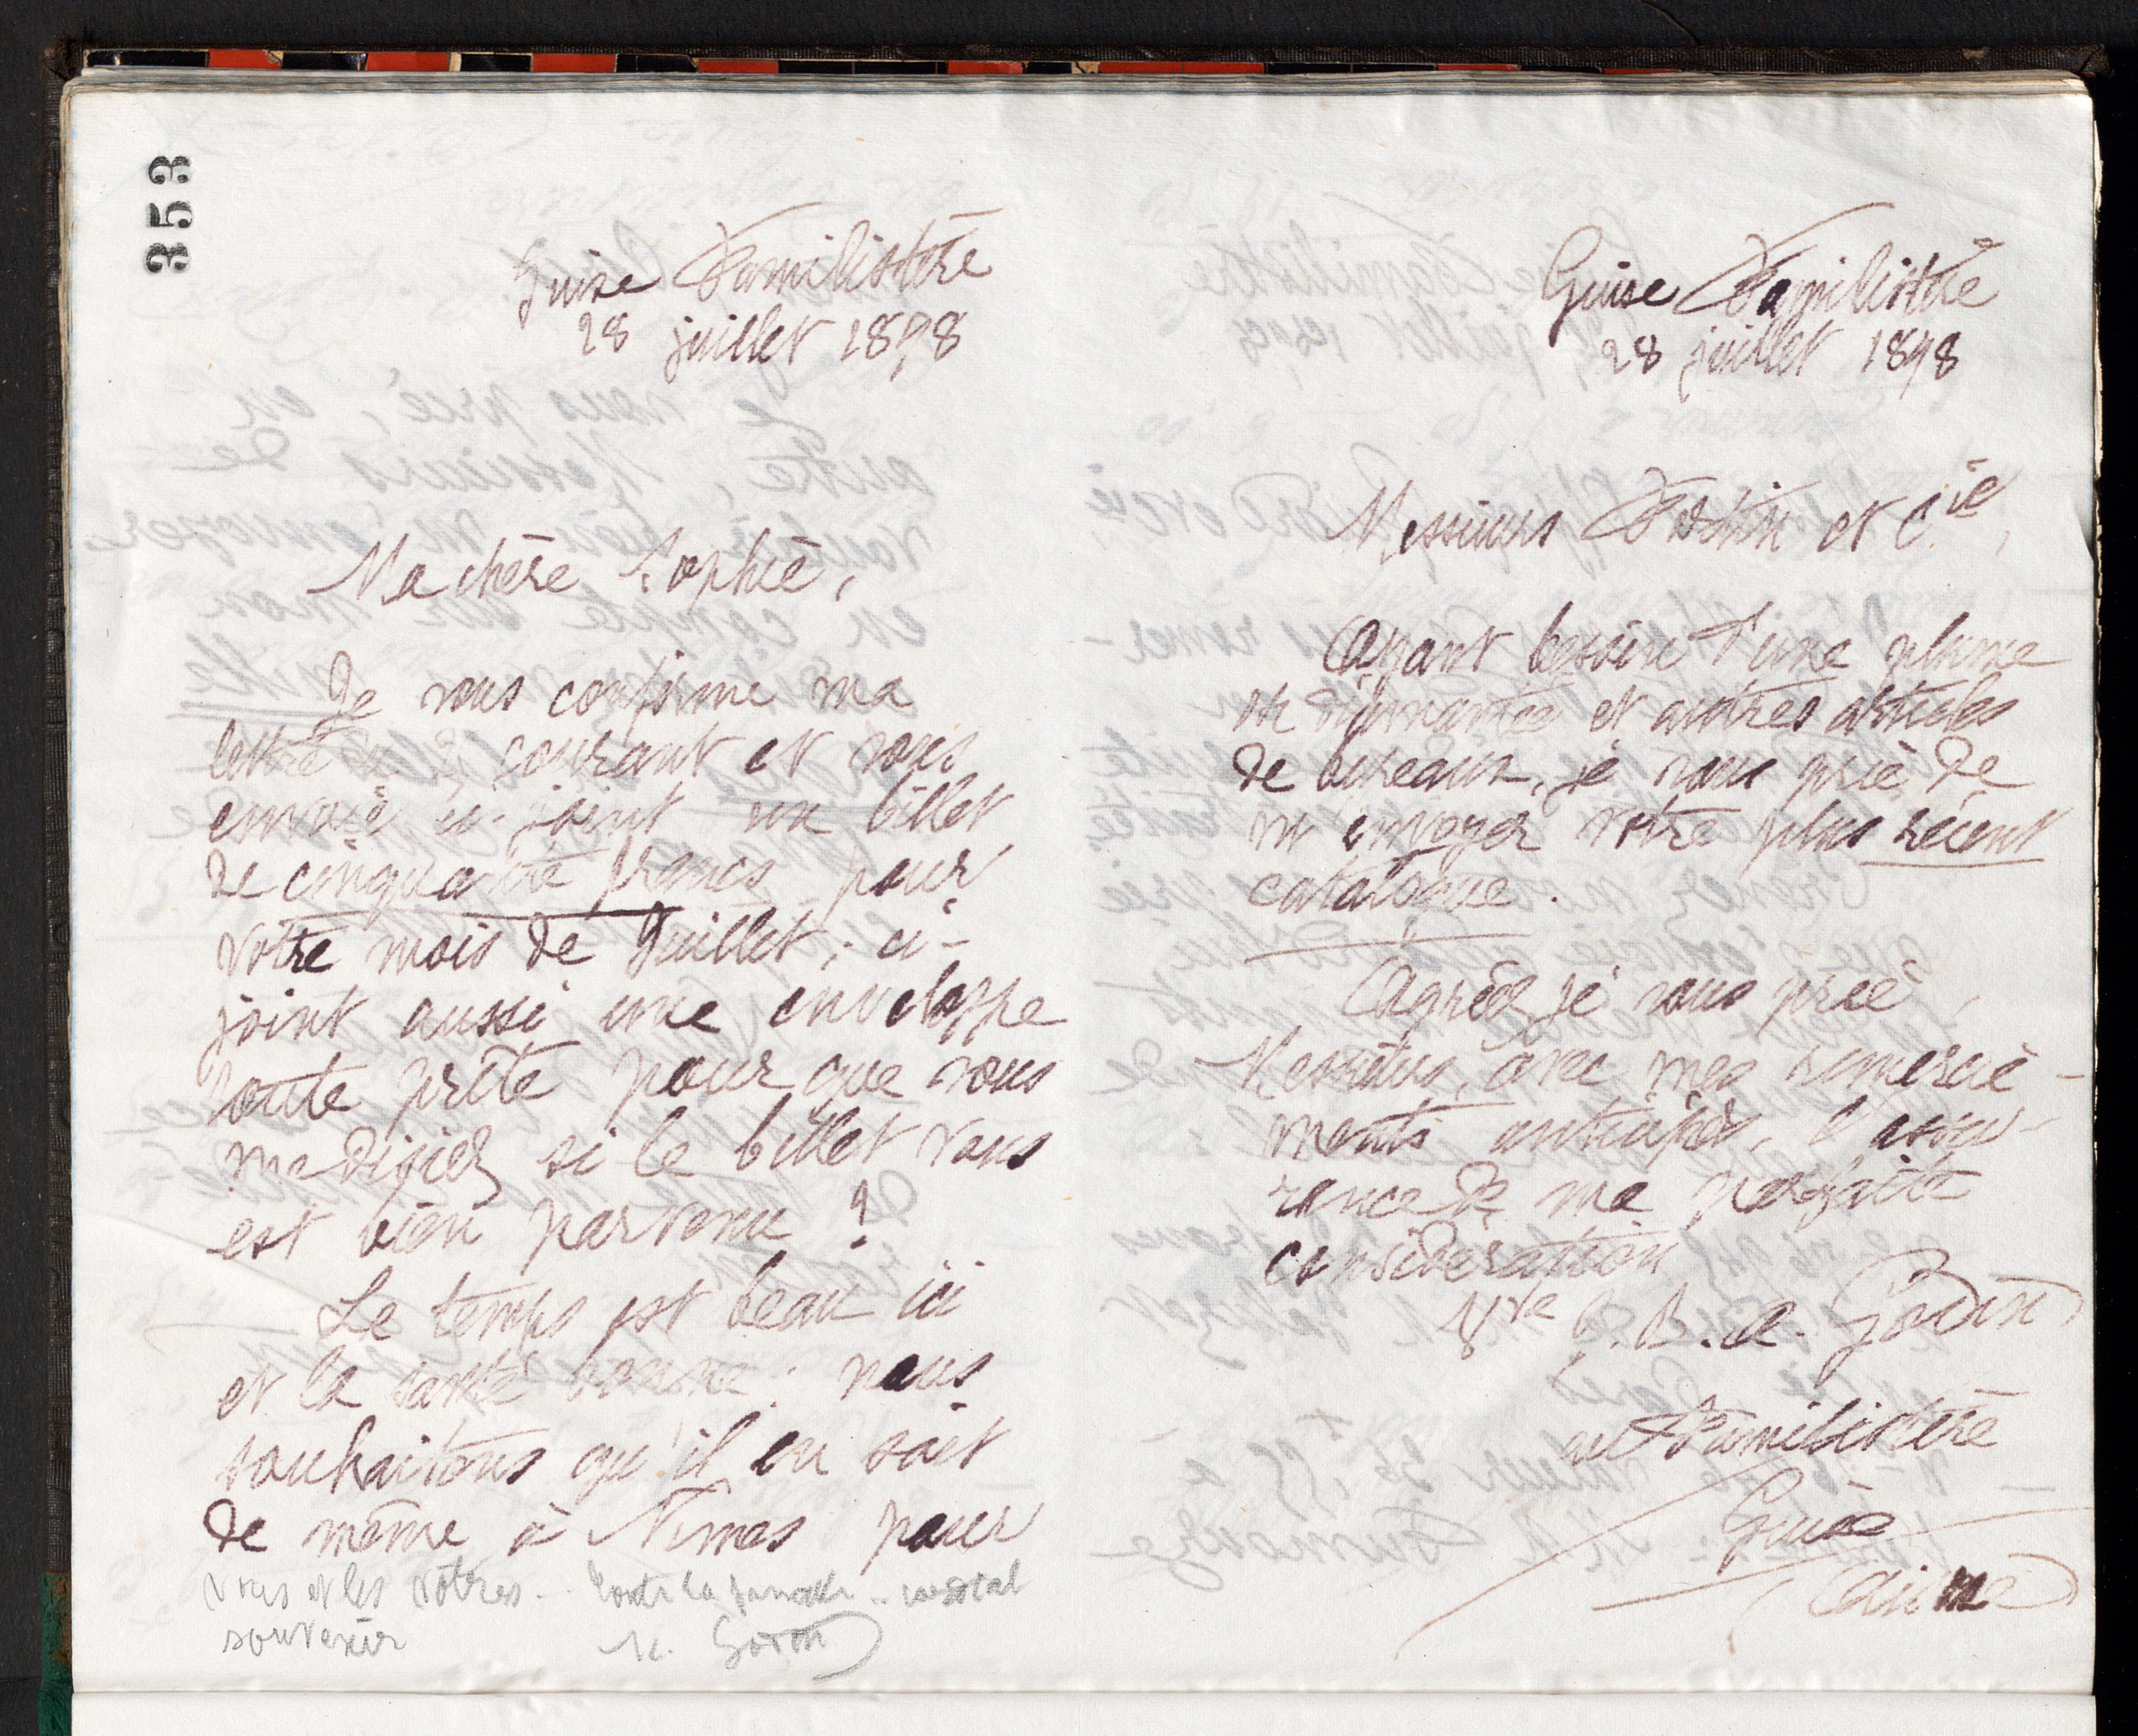 353
Guise Familistère
28 juillet 1898
Ma chère Sophie,
Je vous confirme ma
lettre du courant et vous
envoie ci-joint un billet
de cinquante francs pour
votre mois de Juillet ; ci-
joint aussi une enveloppe
toute prête pour que vous
me disiez si le billet vous
est bien parvenu ?
Le temps est beau ici
et la santé bonne ; nous
souhaitons qu'il en soit
de même à Nimes pour
vous et les vôtres - cordial
souvenir
Guise Familistère
28 juillet 1898
Messieurs et Cie,
Ayant besoin d'une plume
diamantée et autres articles
de bureaux, je vous prie de
m'envoyer votre plus récent
catalogue.
Agréez je vous prie,
Messieurs, avec mes remercie-
ments anticipés, l'assu-
rance de ma parfaite
considération
Vve J. B. A. Godin
au Familistère
Guise
Aisne